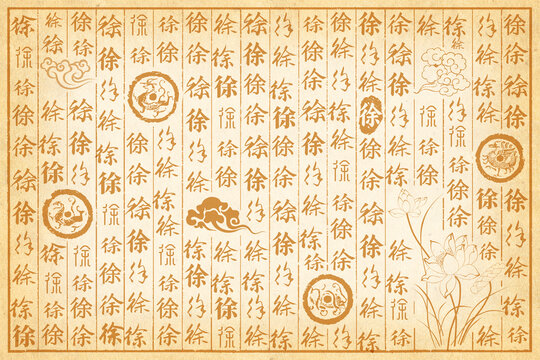 徐徐徐徐徐徐徐徐徐徐
徐徐徐徐徐徐徐徐徐
徐徐徐徐徐徐徐徐
徐徐徐徐徐
徐徐徐徐徐徐徐徐徐徐
徐徐徐徐徐徐徐徐徐徐徐
徐徐徐徐徐徐徐徐徐徐
徐徐徐徐徐徐徐徐徐徐
徐徐徐徐徐徐徐徐徐徐徐徐
徐徐徐徐徐徐徐徐徐徐徐徐
徐徐徐徐徐徐徐徐徐徐
徐徐徐徐徐徐徐徐徐徐徐
徐徐徐徐徐徐徐徐徐徐徐
徐徐徐徐徐徐徐徐徐徐徐徐
徐徐徐徐徐徐徐徐徐徐徐徐
徐徐徐徐徐徐徐徐徐徐徐
徐徐徐徐徐徐徐徐徐徐
徐徐徐徐徐徐徐徐徐徐徐